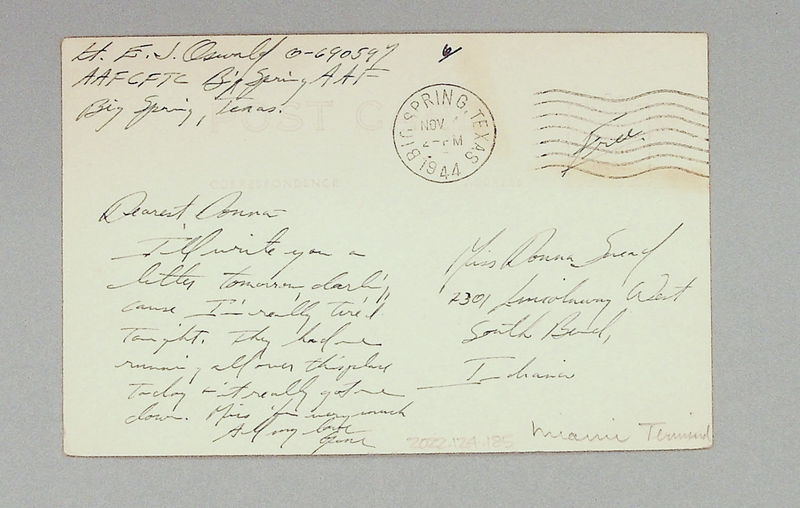 Lt. E. J. Oswald O-690597
AAFCFTC Big Spring AAF
Big Spring, Texas.
POST C
CORRESPONDENCE
BIG SPRING TEXAS
NOV
2 - PM
1944
Free.
Dearest Donna
I'll write you a
letter tomorrow, darling,
cause I'm really tired
tonight. They had me
running all over this place
today & it really got me
down. Miss you very much
All my love
Gene
Miss Donna
2301 Lincolnway West
South Bend,
Indiana
2022.124.185
Miami Terminal